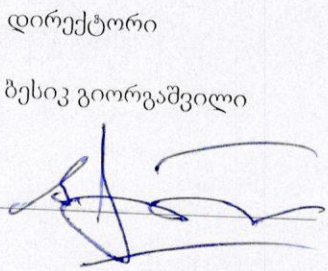 დირექტორი
ბესიკ გიორგაშვილი